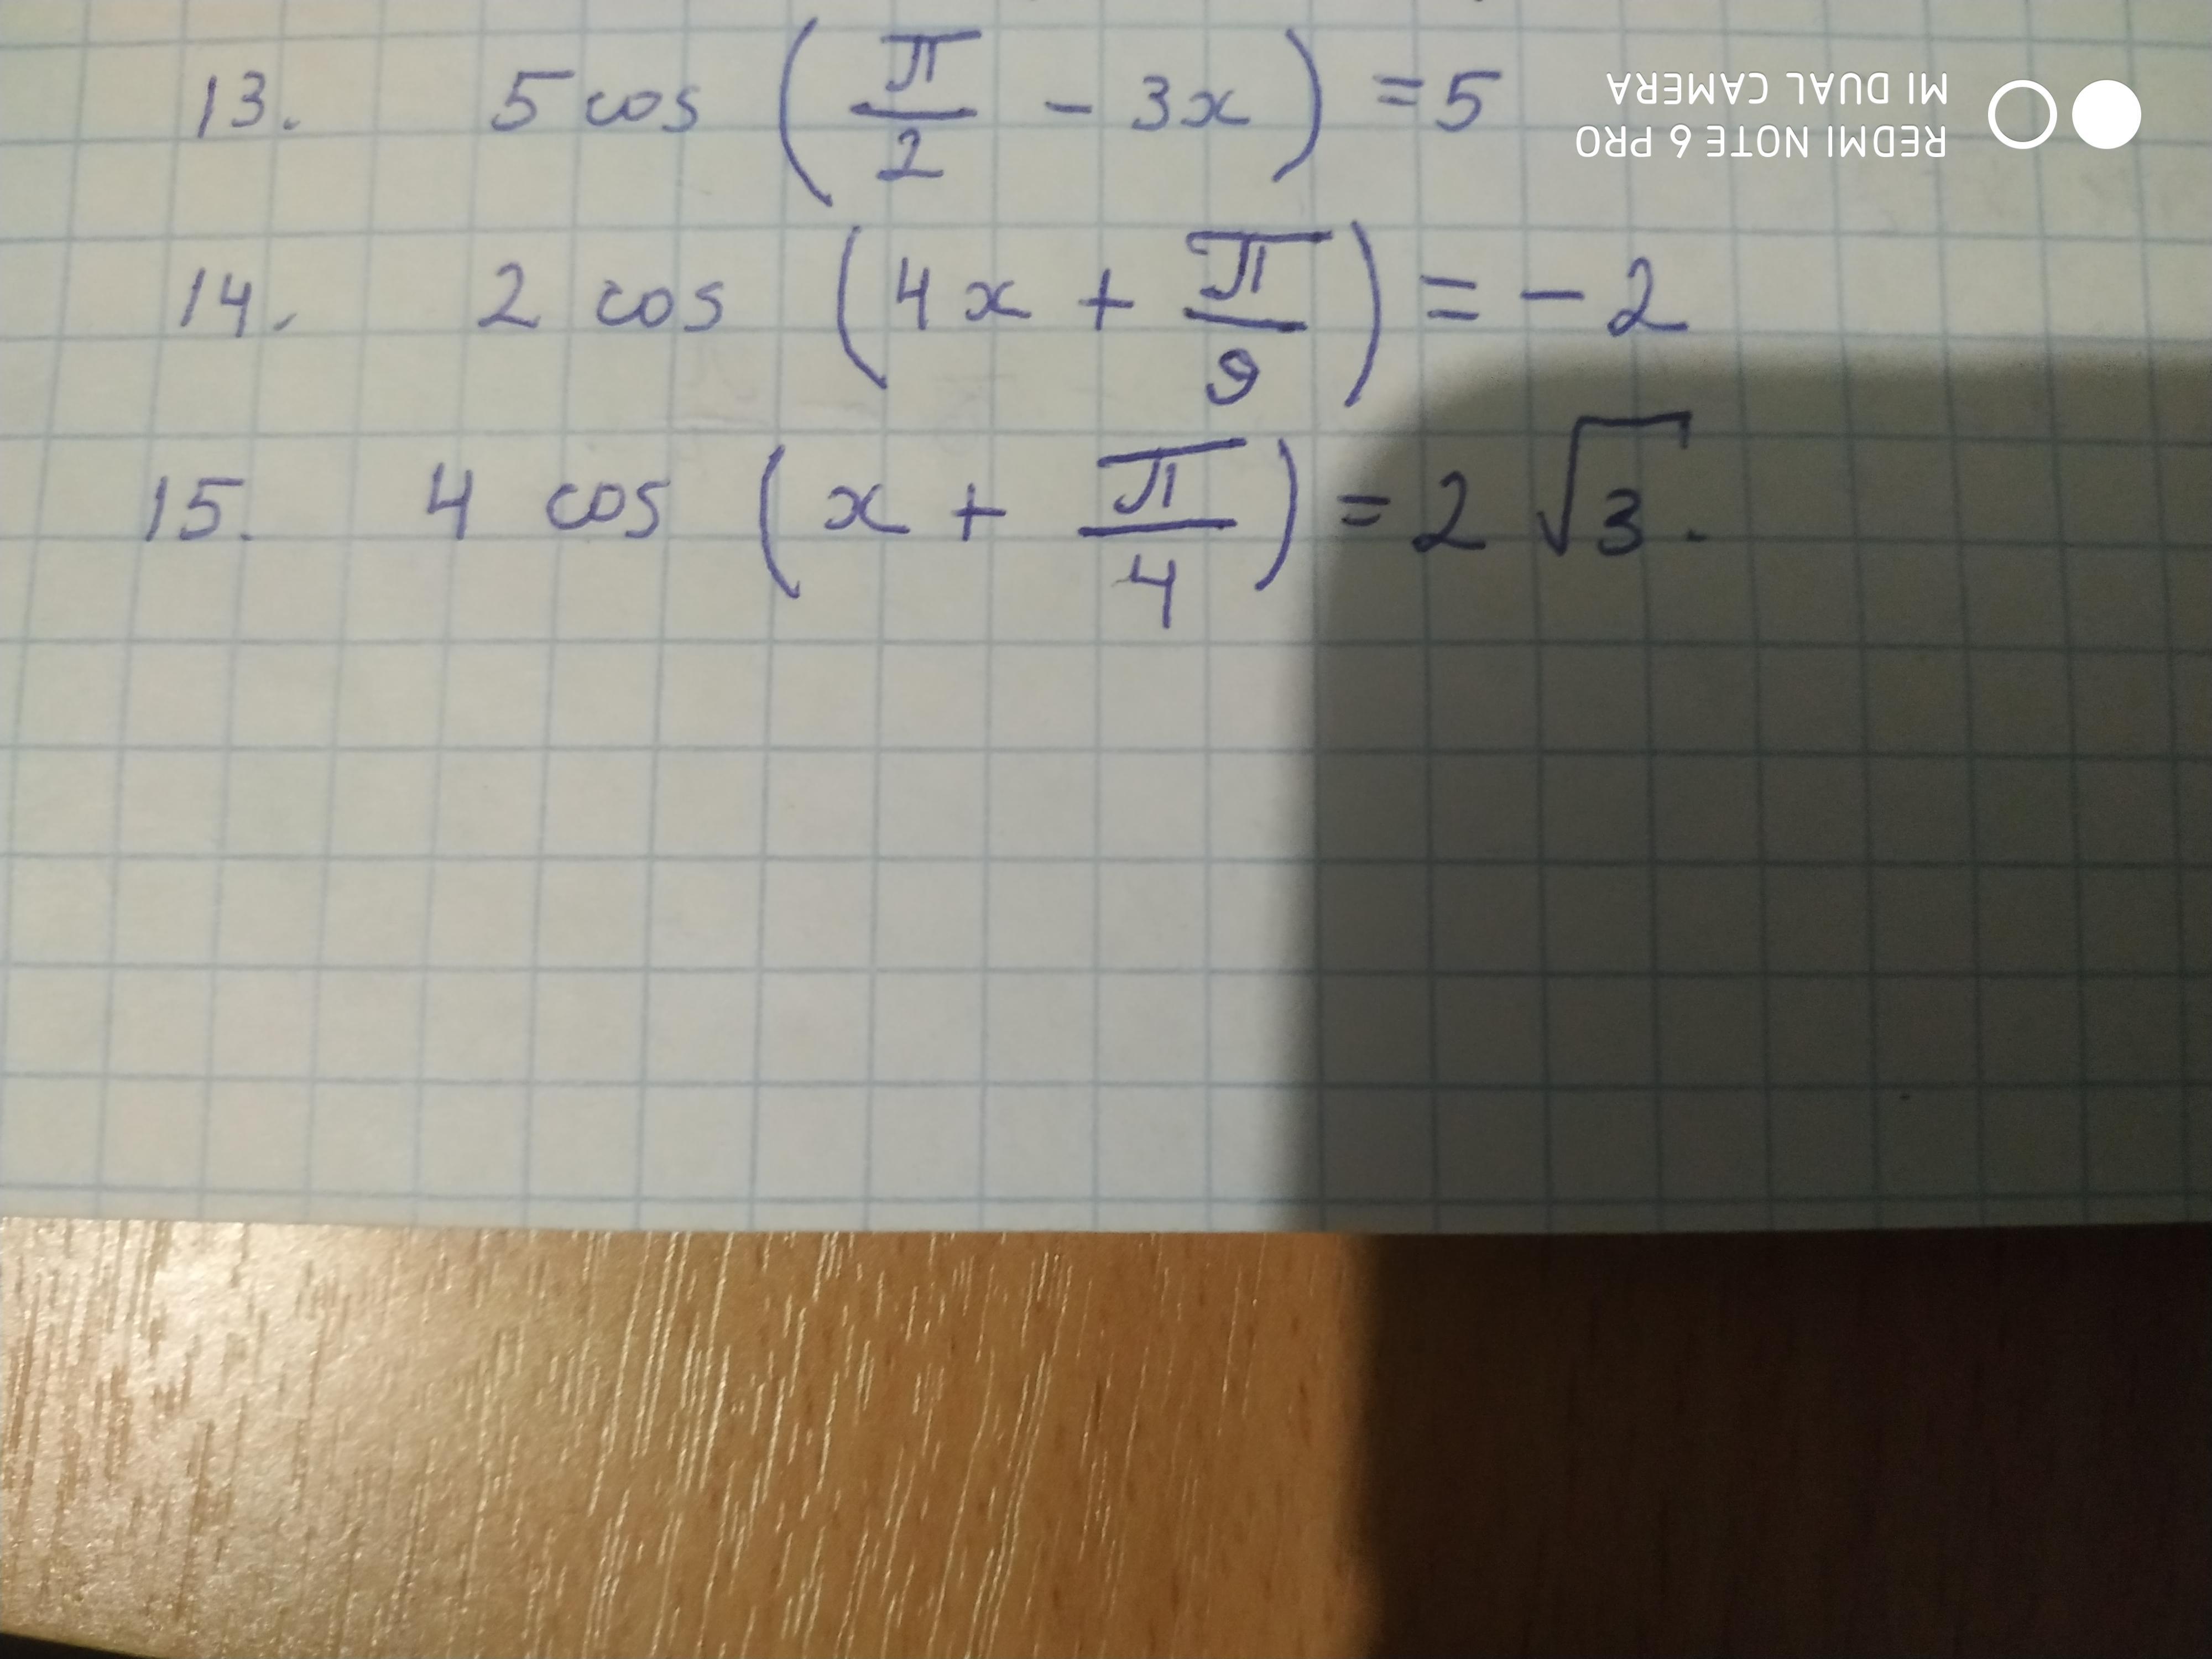 13. 5 cos (π/2 - 3x) = 5
14. 2 cos (4x + π/9) = -2
15. 4 cos (x + π/4) = 2 √3.
REDMI NOTE 6 PRO
MI DUAL CAMERA